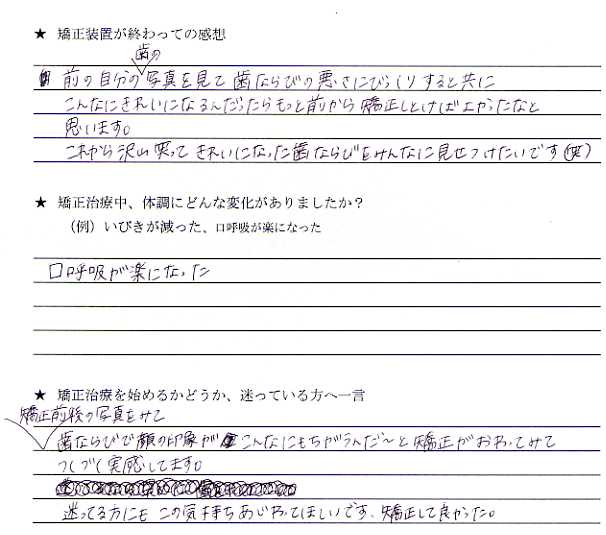 ★ 矯正装置が終わっての感想
歯の
前の自分の写真を見て歯ならびの悪さにびっくりすると共に
こんなにきれいになるんだったらもっと前から矯正しとけばよかったなと
思います。
これから沢山笑ってきれいになった歯ならびをみんなに見せつけたいです(笑)
★ 矯正治療中、体調にどんな変化がありましたか？
（例）いびきが減った、口呼吸が楽になった
口呼吸が楽になった
★ 矯正治療を始めるかどうか、迷っている方へ一言
矯正前後の写真をみて
歯ならびで顔の印象がこんなにもちがうんだ～と矯正がおわってみて
つくづく実感してます。
迷ってる方にもこの気持ちあじわってほしいです。矯正して良かった。